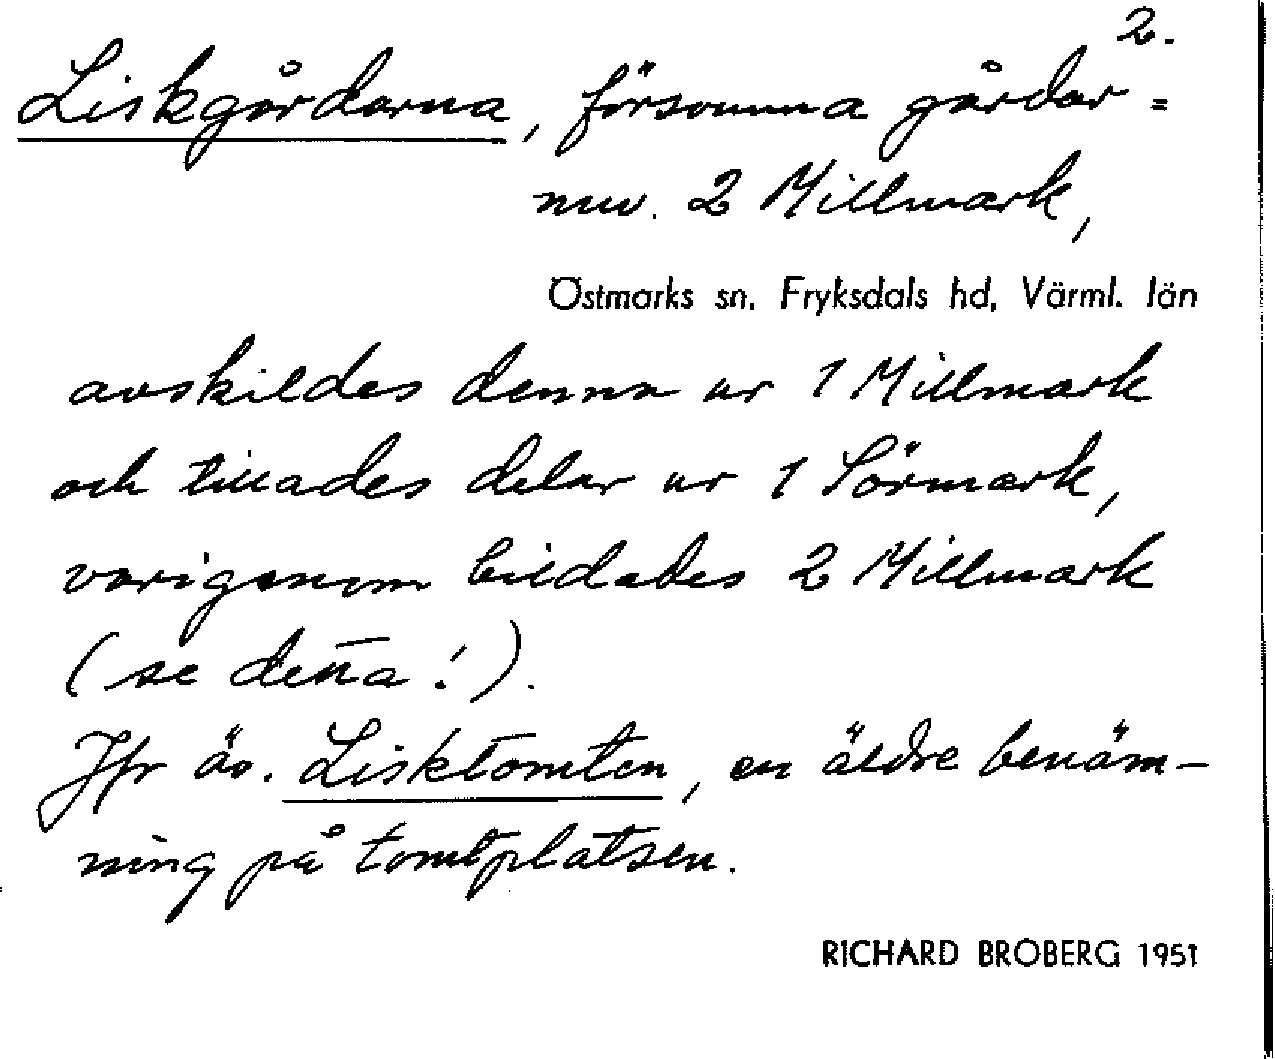 2.
Liskgårdarna, försvunna gårdar =
nuv. 2 Millmark,
Östmarks sn, Fryksdals hd, Värml. län
avskildes denna ur 1 Millmark
och tillades delar ur 1 Sörmark,
varigenom bildades 2 Millmark
(se detta!).
Jfr äv. Lisktomten, en äldre benäm-
ning på tomtplatsen.
RICHARD BROBERG 1951